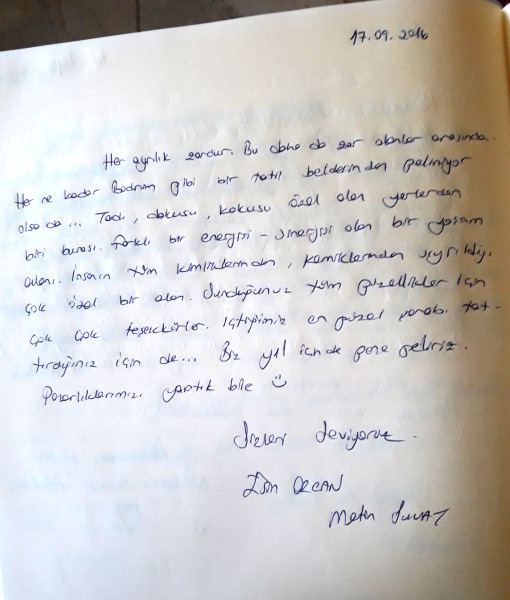 17.09.2016
Her ayrılık zordur. Bu daha da zor olanlar arasında.
Her ne kadar Bodrum gibi bir tatil beldesinden geliniyor
olsa da... Tadı, dokusu, kokusu özel olan yerlerden
biri burası. Farklı bir energisi - sinergisi olan bir yaşam
alanı. İnsanın tüm kimliklerinden, kemiklerinden sıyrıldığı,
çok özel bir alan. Sunduğunuz tüm güzellikler için
çok çok teşekkürler. İçtiğimiz en güzel şarabı tat-
tırdığınız için de... Biz yıl içinde gene geliriz.
Pazarlıklarımızı yaptık bile ☺
Sizleri Seviyoruz.
Işın OZCAN
Metin SUVAT